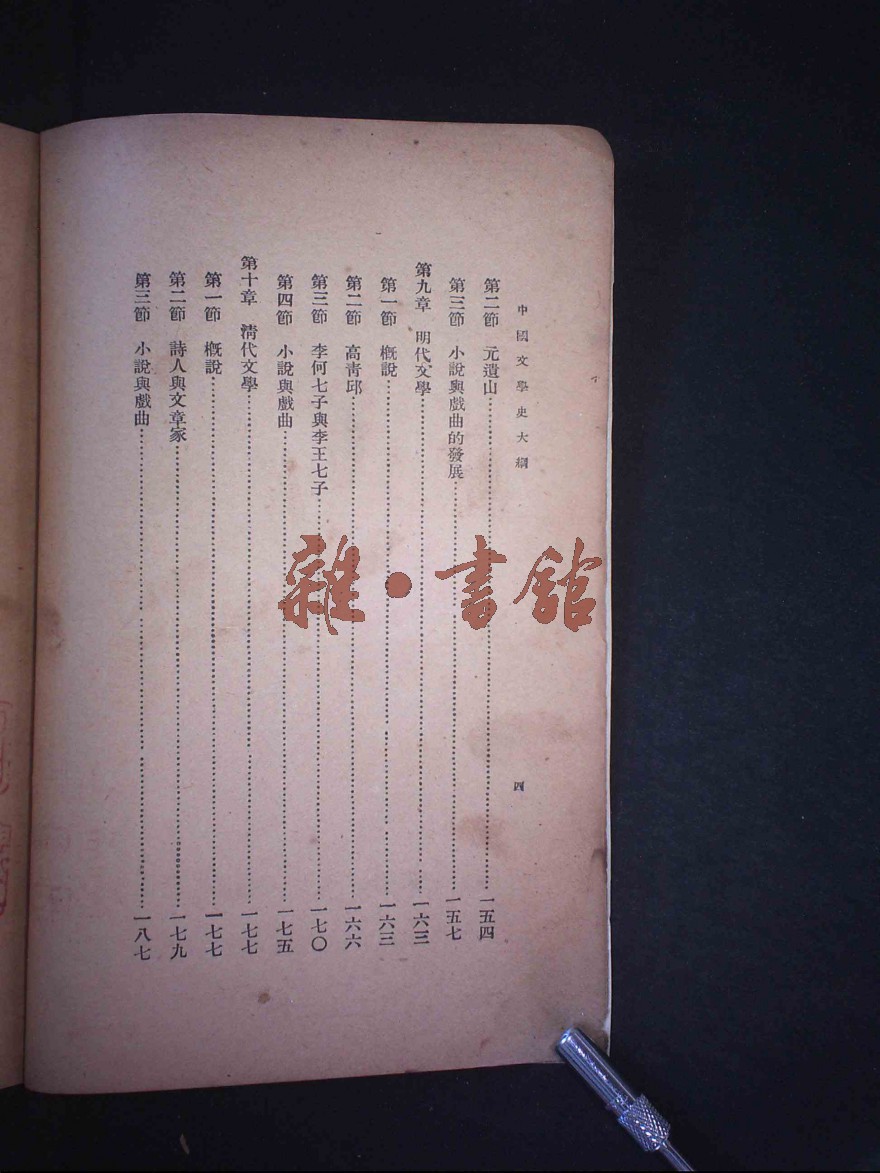 中國文學史大綱
四
第二節 元遺山…………一五四
第三節 小說與戲曲的發展…………一五七
第九章 明代文學…………一六三
第一節 概說…………一六三
第二節 高青邱…………一六六
第三節 李何七子與李王七子…………一七〇
第四節 小說與戲曲…………一七五
第十章 清代文學…………一七七
第一節 概說…………一七七
第二節 詩人與文章家…………一七九
第三節 小說與戲曲…………一八七
雜·書館